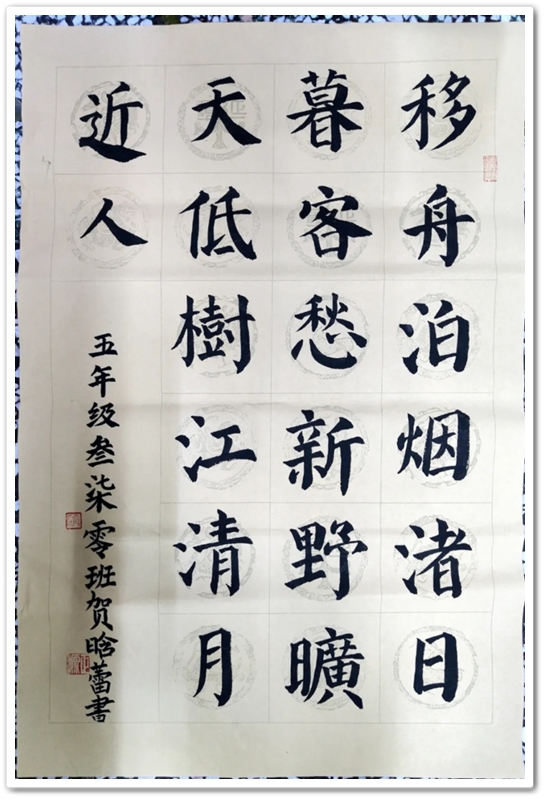 移舟泊烟渚日
暮客愁新野曠
天低樹江清月
近人
五年级叁柒零班贺晗蕾書